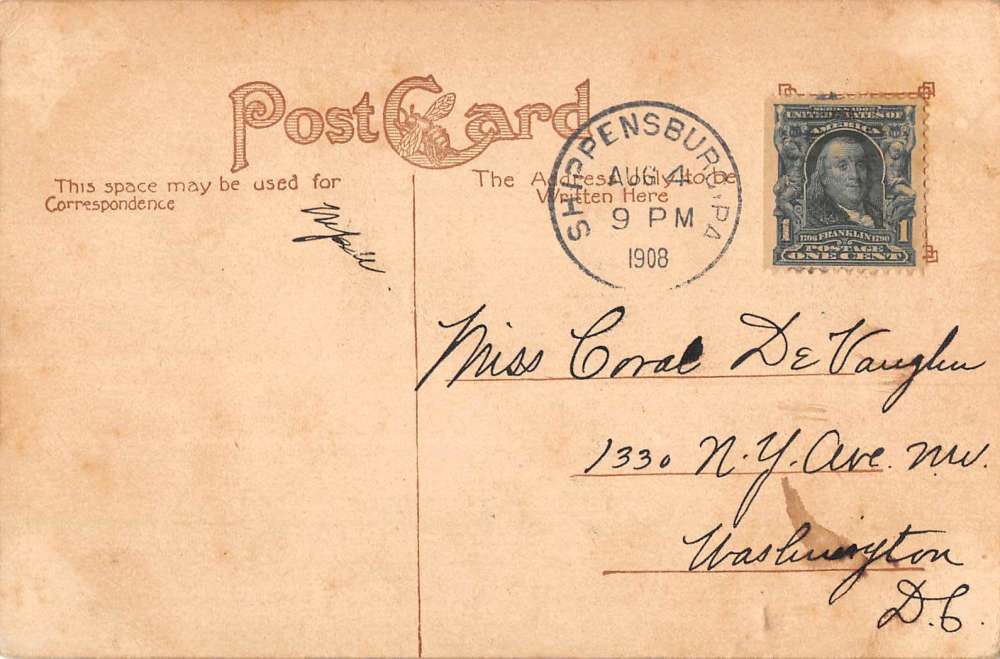 Post Card
This space may be used for
Correspondence
The Address only to be
Written Here
SHIPPENSBURG, PA
AUG 4
9 PM
1908
SERIES 1902
UNITED STATES OF
AMERICA
1706 FRANKLIN 1790
1 POSTAGE 1
ONE CENT
Miss Coral De Vaughn
1330 N.Y. Ave. NW.
Washington
D.C.